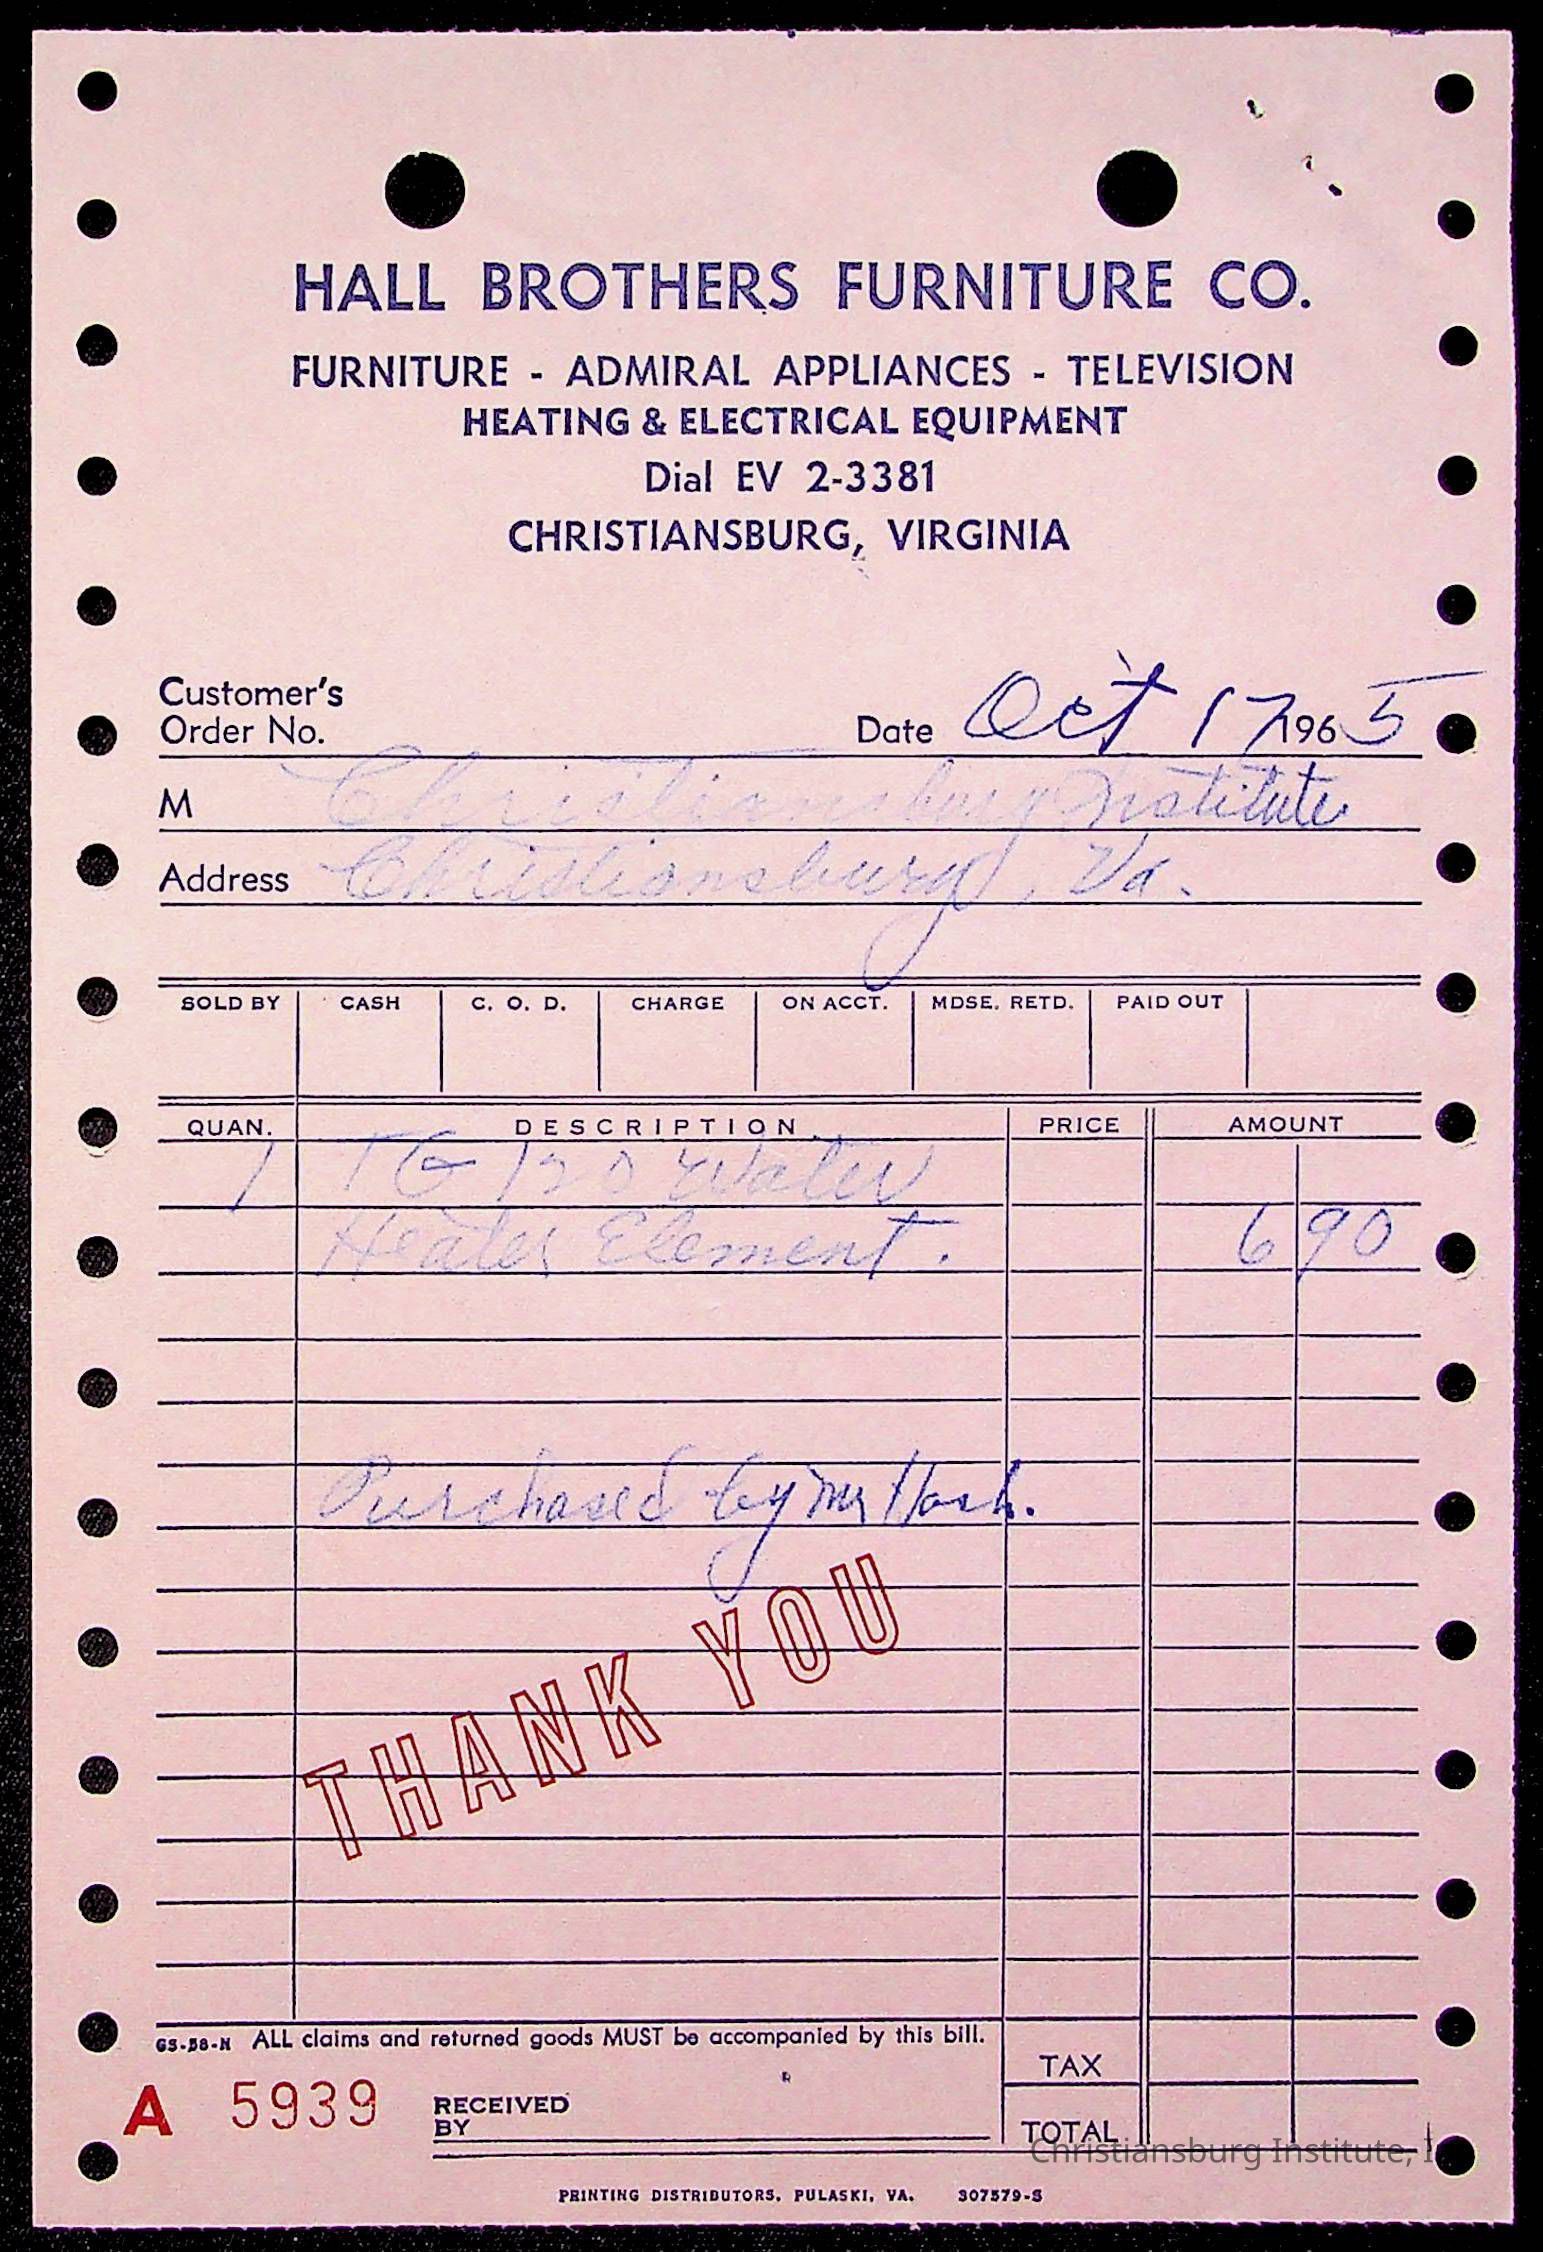 HALL BROTHERS FURNITURE CO.
FURNITURE - ADMIRAL APPLIANCES - TELEVISION
HEATING & ELECTRICAL EQUIPMENT
Dial EV 2-3381
CHRISTIANSBURG, VIRGINIA
Customer's
Order No. Date Oct 17 1965
M Christiansburg Institute
Address Christiansburg, Va.
SOLD BY CASH C. O. D. CHARGE ON ACCT. MDSE. RETD. PAID OUT
QUAN. DESCRIPTION PRICE AMOUNT
1 TG 120 Water
Heater Element. 6 90
Purchased by Mr
THANK YOU
GS-58-N ALL claims and returned goods MUST be accompanied by this bill.
TAX
A 5939 RECEIVED
BY
TOTAL
Christiansburg Institute,
PRINTING DISTRIBUTORS, PULASKI, VA. 307579-S